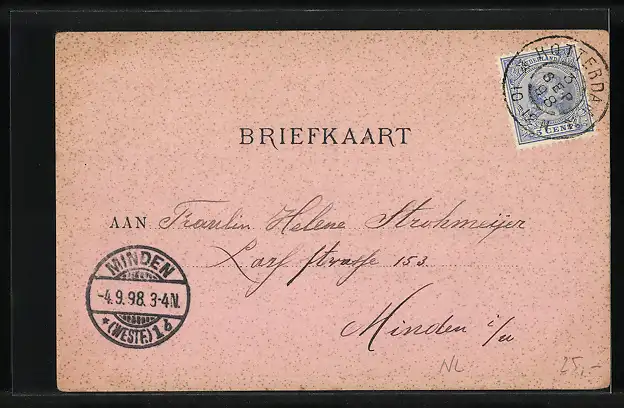 ROTTERDAM
3 SEP 98
NEDERLAND
5 CENT
BRIEFKAART
AAN Fraulin Helene Strohmeijer
strasse 153
Minden i/w
MINDEN
-4.9.98. 3-4N.
*(WESTF.)1d
NL
25,-